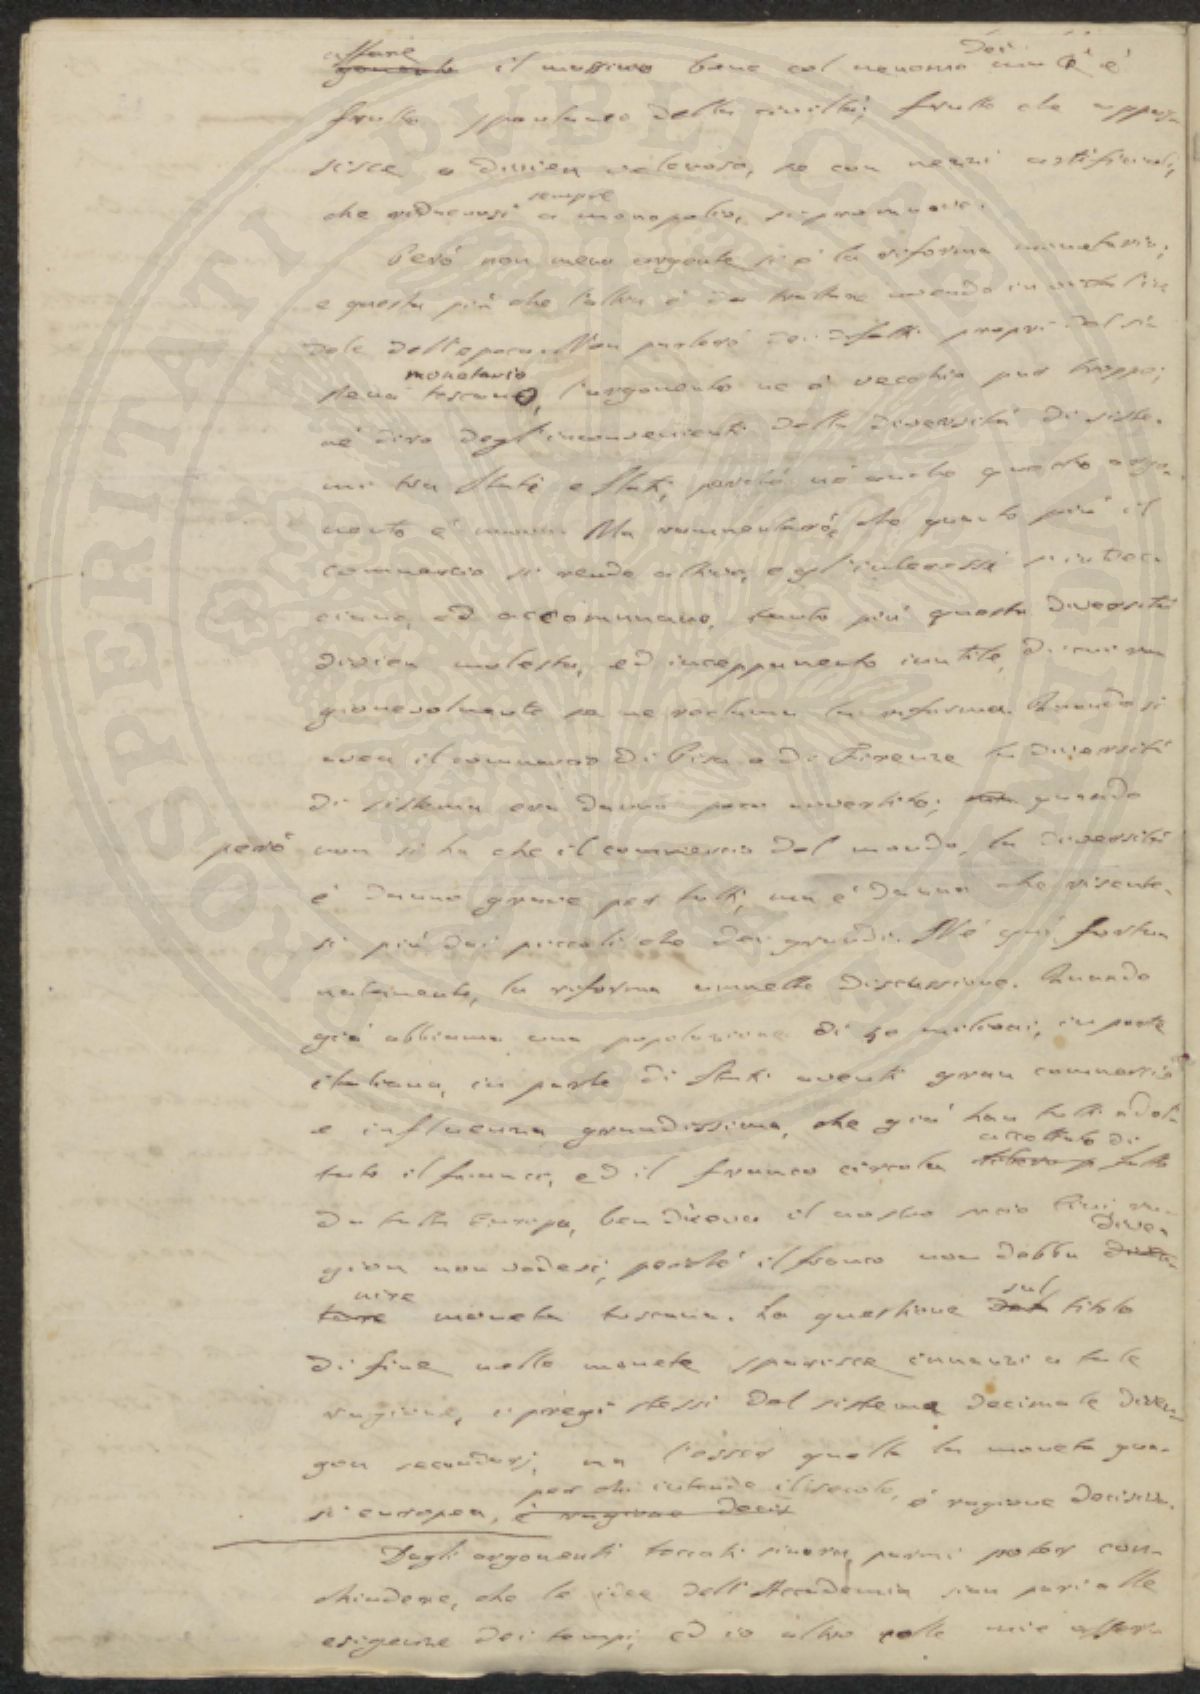 affare
il massimo bene col menomo dei mali è
frutto spontaneo della civiltà; frutto che appas-
sisce o divien velenoso, se con mezzi artificiali,
sempre
che riduconsi a monopolio, si promuove.
Però non meno urgente si è la riforma monetaria;
e questa più che l'altra è da trattare avendo in vista l'in
dole dell'epoca. Non parlerò dei difetti propri del si
monetario
stema toscano, l'argomento ne è vecchio pur troppo;
nè dirò degl'inconvenienti della diversità di siste-
mi tra Stati e Stati, perchè nè anche questo argo-
mento è nuovo. Ma rammenterò, che quanto più il
commercio si rende attivo, e gl'interessi s'intrec-
ciano, ed accomunano, tanto più questa diversità
divien molesta, ed inceppamento inutile, di cui ra
gionevolmente se ne reclama la riforma. Quando si
avea il commercio di Pisa o di Firenze la diversità
di sistema era danno poco avvertito; quando
però non si ha che il commercio del mondo, la diversità
è danno grave per tutti, ma è danno che risente-
si più dai piccoli che dei grandi. Nè quì fortu
natamente, la riforma ammette discussione. Quando
già abbiamo una popolazione di 50 milioni, in parte
italiana, in parte di Stati aventi gran commercio
e influenza grandissima, che già han tutti adot-
accettato di
tato il franco, ed il franco circola fatto
da tutta Europa, ben diceva il nostro socio
diven
gion non vedesi, perchè il franco non debba
nire sul
moneta toscana. La questione titolo
di fine nelle monete sparisce innanzi a tale
ragione, i pregi stessi del sistema decimale diven-
gon secondarj, ma l'esser quella la moneta qua-
per chi intende il secolo,
si europea, è ragione decis è ragione decisiva.
Dagli argomenti toccati sinora, parmi poter con-
chiudere, che le idee dell'Accademia sian pari alle
esigenze dei tempi, ed io altro colle mie